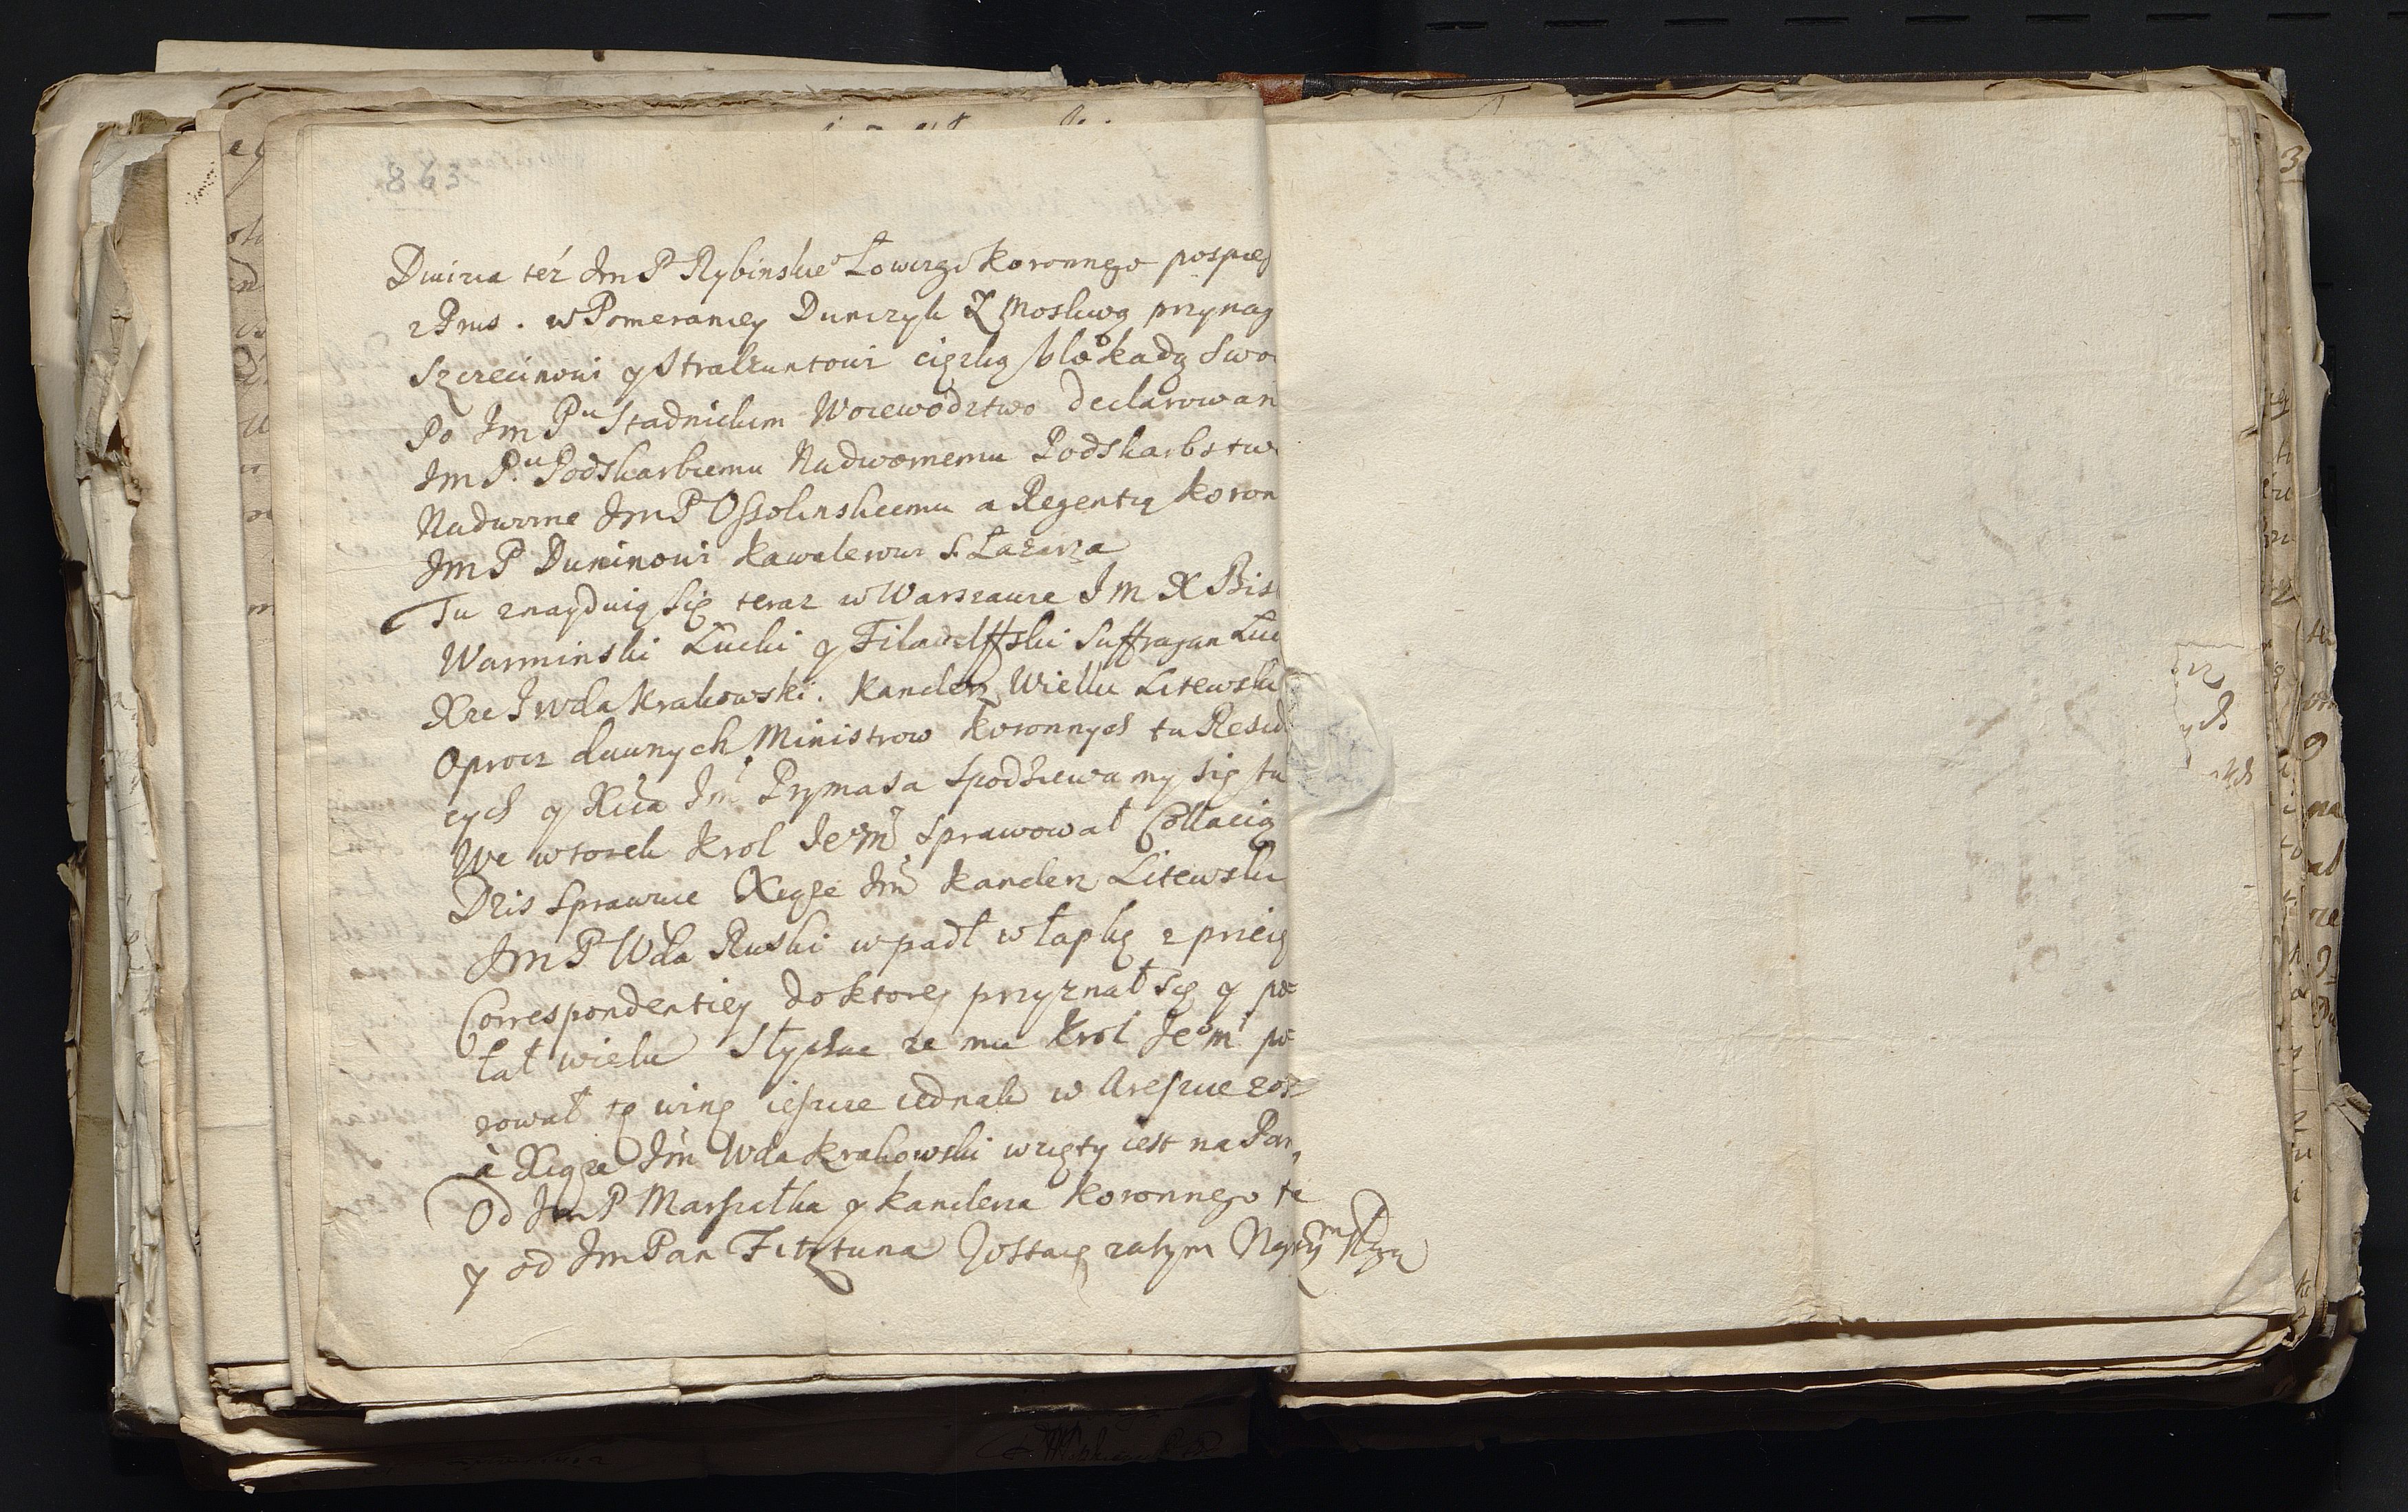 863
Diuizia też Jm P Rybinskieo Łowczgo koronnego pospies
z Prus. w Pomeraniey Dunczyk Z Moskwą przynag
Szczecinowi y Stralzuntowi ciężką blokadą swo
Po Jm Pu Stadnickim Woiewodztwo declarowan
Jm Pu Podskarbiemu Nadwornemu Podskarbstw
Nadworne Jm P Ossolinskiemu a Regentią koron
Jm P Duninowi kawalerowi S. Łazarza
Tu znayduią się teraz w Warszawie J m X Bis
Warminski Łucki y Filadelffski Suffragan Łuc
Xze J wda krakowski. kanclerz Wielki Litewski
oprocz dawnych Ministrow koronnych tu Resid
cych y Xcia Jm Prymasa spodziewamy się tu
We wtorek krol Jeomć sprawował Collacią
Dzis sprawuie Xiąże Jm kanclerz Litewski
Jm P Wda Ruski wpadł w łapkę z przeię
Correspondentiey do ktorey przyznał się y po=
łał wielu Słychac ze mu krol Jeomć po=
rował tę winę ieszcze iednak w Areszcie zos
a Xiąże Jm Wda krakowski wzięty iest na Par,
Od Jm P Marszałka y kanclerza koronnego te
y od Jm Pan Fitztuna zostaię zatym
3